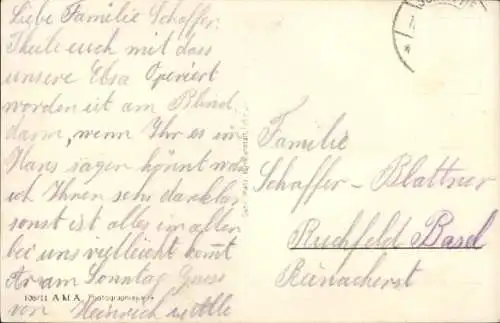 Liebe Familie Schaffer.
Theile euch mit dass
unsere Elsa Operiert
worden ist am Blind
darm, wenn Ihr es im
Hans sagen könnt wär
ich Ihnen sehr dankbar
sonst ist alles im alten
bei uns vielleicht komt
am Sonntag Gruss
von Heinrich u Alle
106/11 A.M.A. Photographie
Familie
Schaffer - Blattner
Ruchfeld Basel
Reinacherst